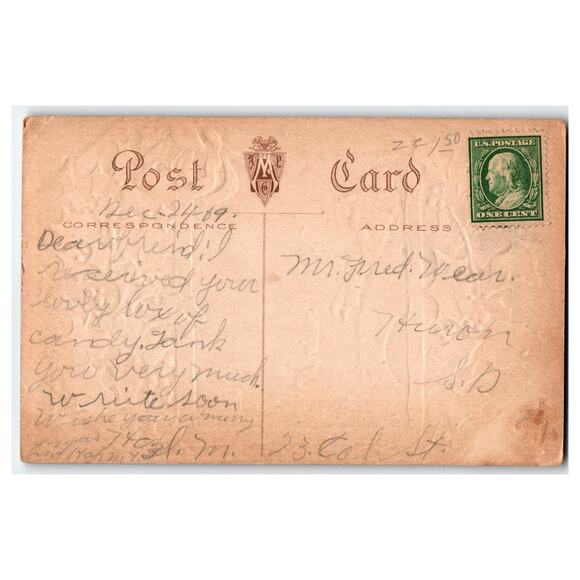 22/150
Post Card
U.S. POSTAGE
ONE CENT
Dec-24-09.
CORRESPONDENCE
ADDRESS
Dear friend: I
received your
lovly box of
candy. Tank
you very much.
write soon
Wishe you a mery
Mr. Fred. Wear.
Huron
S.D
23. Col St.